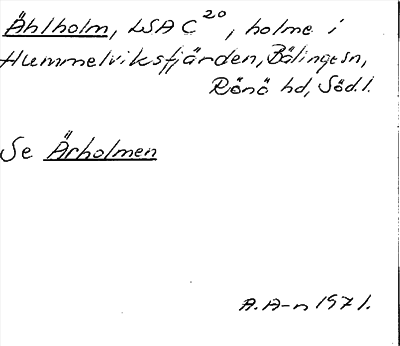 Ählholm, LSA C²⁰, holme i
Hummelviksfjärden, Bälinge sn,
Rönö hd, Söd.l.
Se Ärholmen
A. A-n 1971.